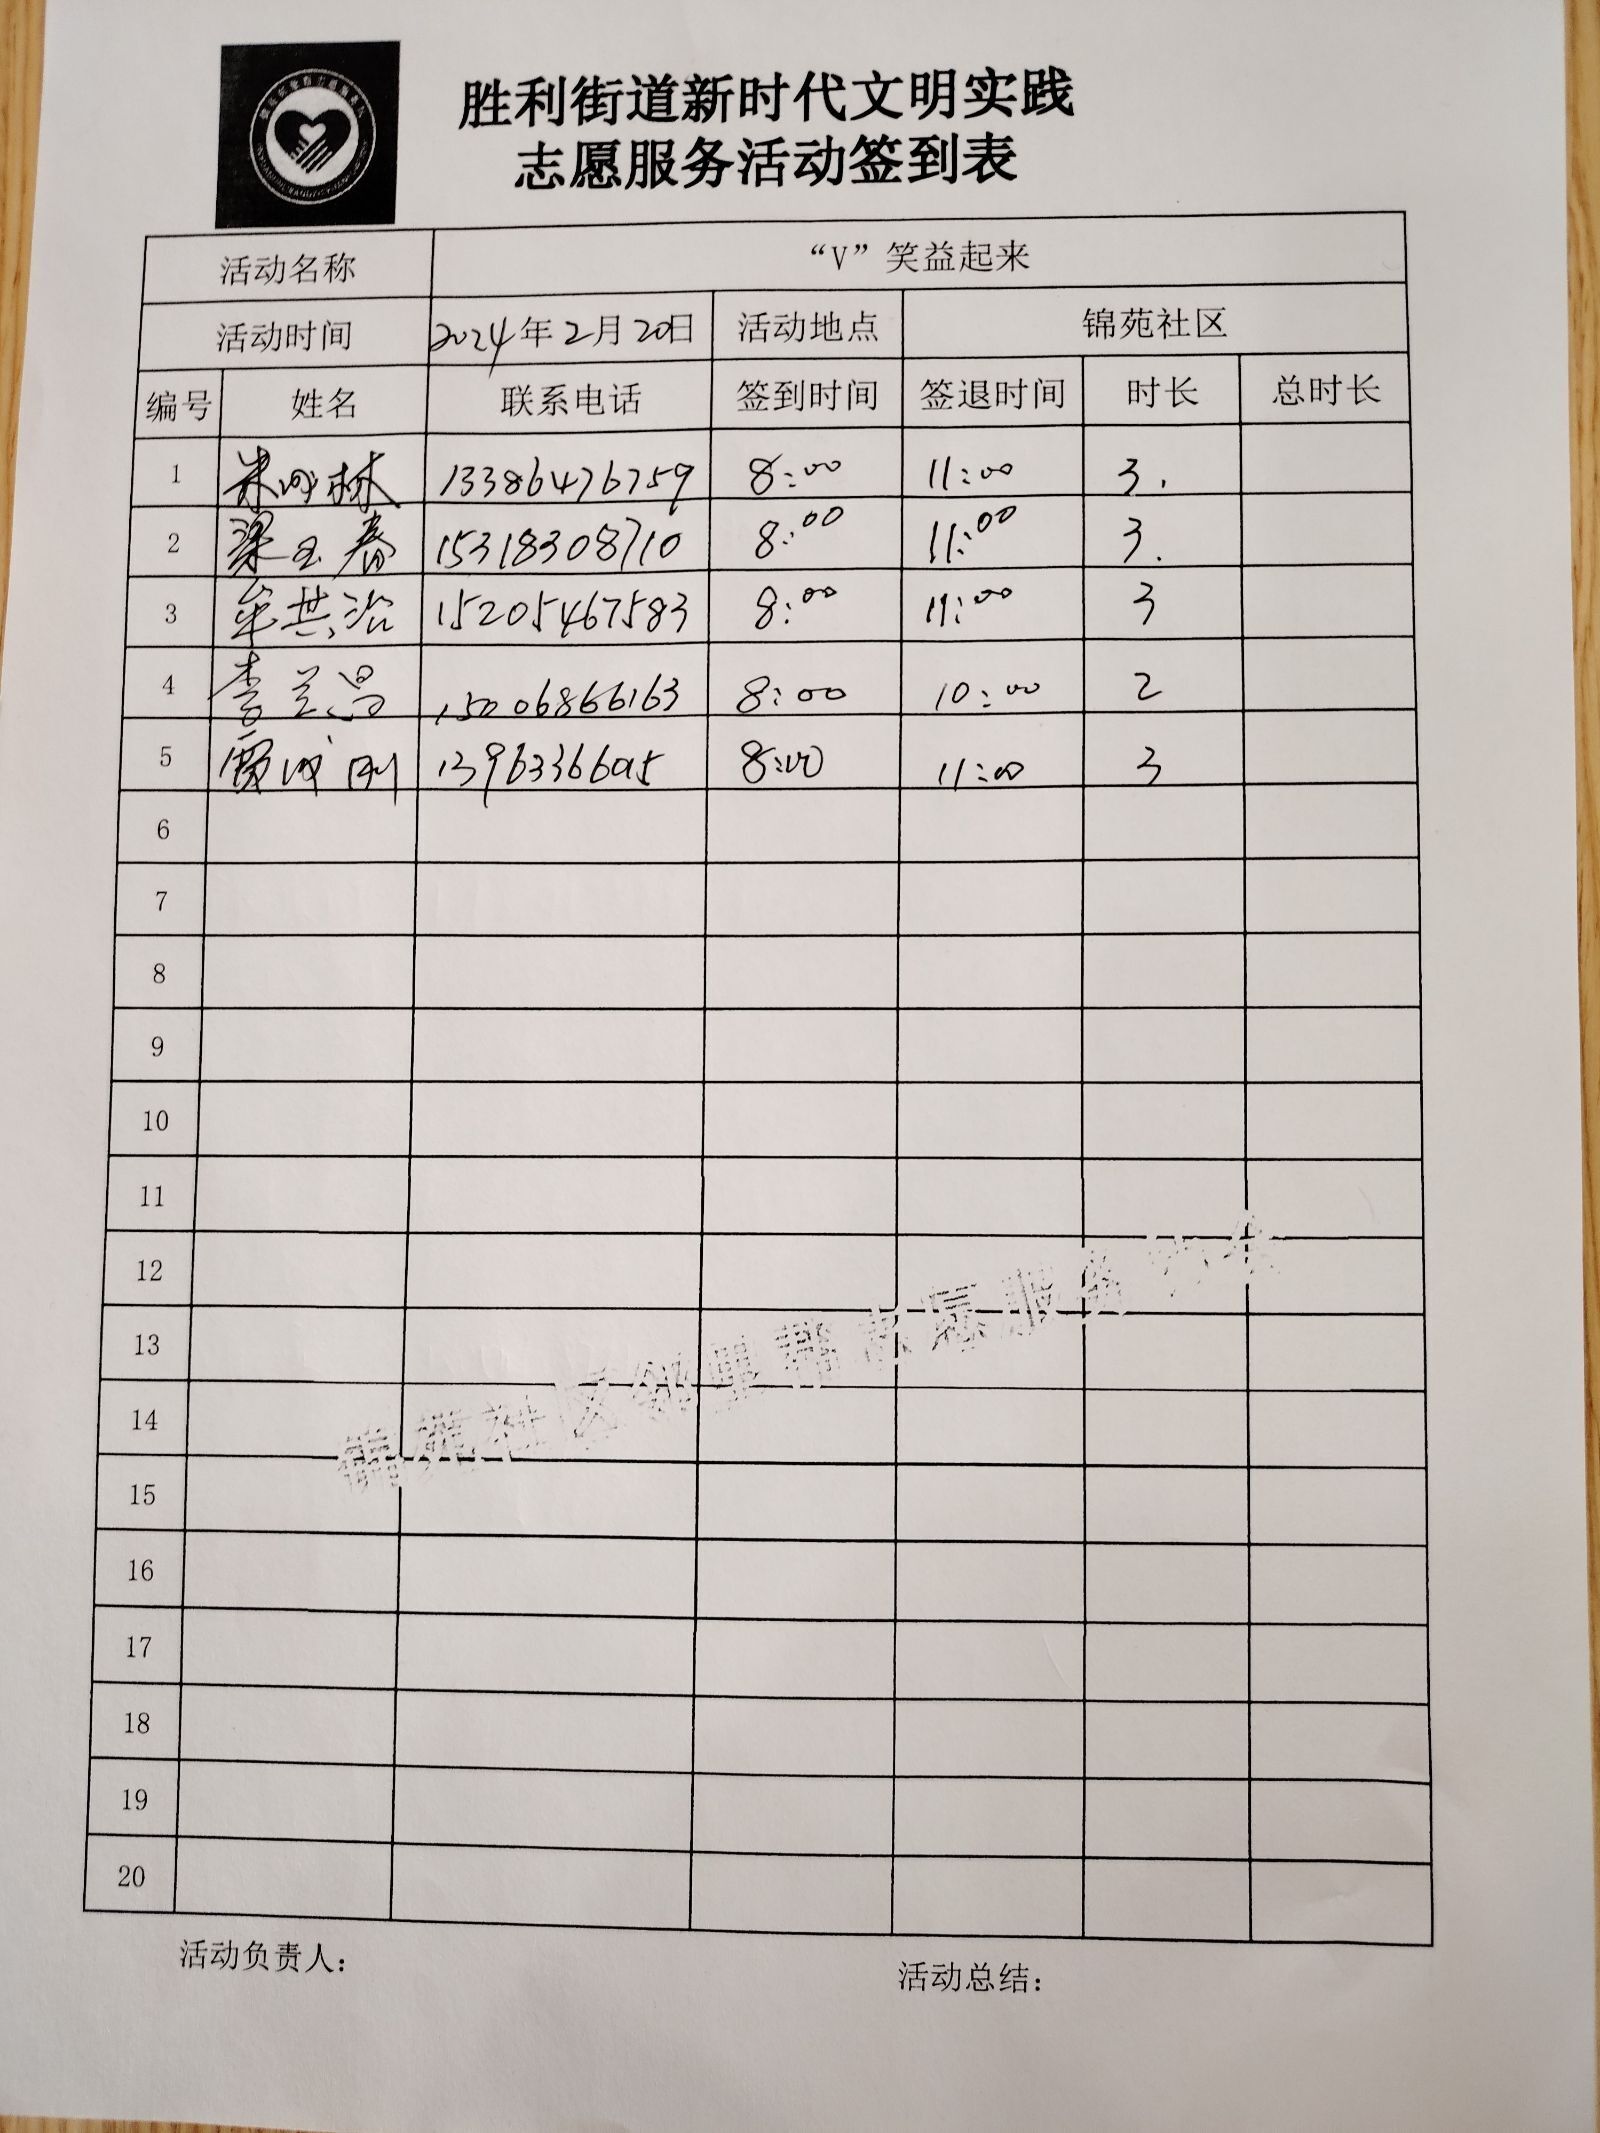 胜利街道新时代文明实践
志愿服务活动签到表
活动名称 “V”笑益起来
活动时间 2024年2月20日 活动地点 锦苑社区
编号 姓名 联系电话 签到时间 签退时间 时长 总时长
1 林 13386476759 8:00 11:00 3.
2 梁玉春 15318308710 8:00 11:00 3.
3 牟其治 15205467583 8:00 11:00 3
4 李兰昌 15006866163 8:00 10:00 2
5 贾成刚 8:00 11:00 3
6
7
8
9
10
11
12
13
14
15
16
17
18
19
20
锦苑社区邻里帮志愿服务协会
活动负责人：
活动总结：